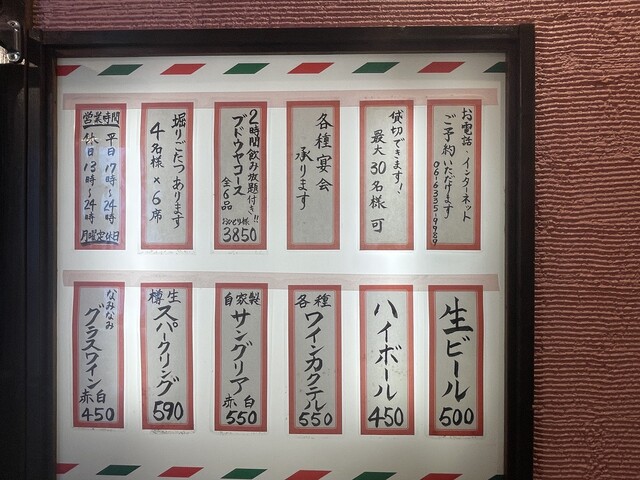 お電話・インターネット
ご予約いただけます
06-6335-9989
貸切できます!
最大30名様 可
各種宴会
承ります
2時間飲み放題付き!!
ブドウヤコース
全6品
おひとり様
3850
堀りごたつあります
4名様×6席
営業時間
平日 17時~24時
休日 13時~24時
月曜定休日
生ビール
500
ハイボール
450
各種
ワインカクテル
550
自家製
サングリア
赤白
550
樽生
スパークリング
590
なみなみ
グラスワイン
赤白
450